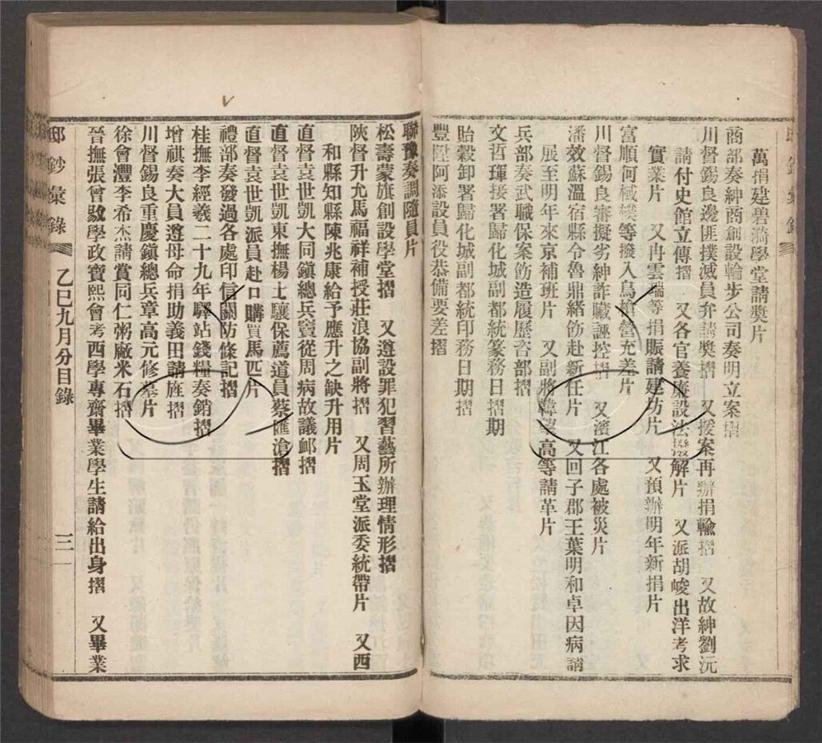 萬捐建碧漪學堂請獎片
商部奏紳商創設輪步公司奏明立案摺
川督錫良邊匪撲滅員弁請獎摺 又援案再辦捐輸摺 又故紳劉沅
請付史館立傳摺 又各官養廉設法解片 又派胡峻出洋考求
實業片 又冉雲端等捐賑請建坊片 又預辦明年新捐片
富順何棫樸等撥入烏槍營充差片
川督錫良審擬劣紳詐贓誣控摺 又濱江各處被災片
潘效蘇溫宿縣令魯鼎緒飭赴新任片 又回子郡王葉明和卓因病請
展至明年來京補班片 又副將韓望高等請革片
兵部奏武職保案飭造履歷咨部摺
文哲琿接署歸化城副都統篆務日摺期
貽穀卸署歸化城副都統印務日期摺
豐陞阿添設員役恭備要差摺
聯豫奏調隨員片
松壽蒙旗創設學堂摺 又遵設罪犯習藝所辦理情形摺
陝督升允馬福祥補授莊浪協副將摺 又周玉堂派委統帶片 又西
和縣知縣陳兆康給予應升之缺升用片
直督袁世凱大同鎮總兵竇從周病故議卹摺
直督袁世凱東撫楊士驤保薦道員蔡匯滄摺
直督袁世凱派員赴口購買馬匹片
禮部奏發過各處印信關防條記摺
桂撫李經羲二十九年驛站錢糧奏銷摺
增祺奏大員遵母命捐助義田請旌摺
川督錫良重慶鎮總兵章高元修墓片
徐會灃李希杰請賞同仁粥廠米石摺
晉撫張曾敭學政寶熙會考西學專齋畢業學生請給出身摺 又畢業
邸鈔彙錄 乙巳九月分目錄 三